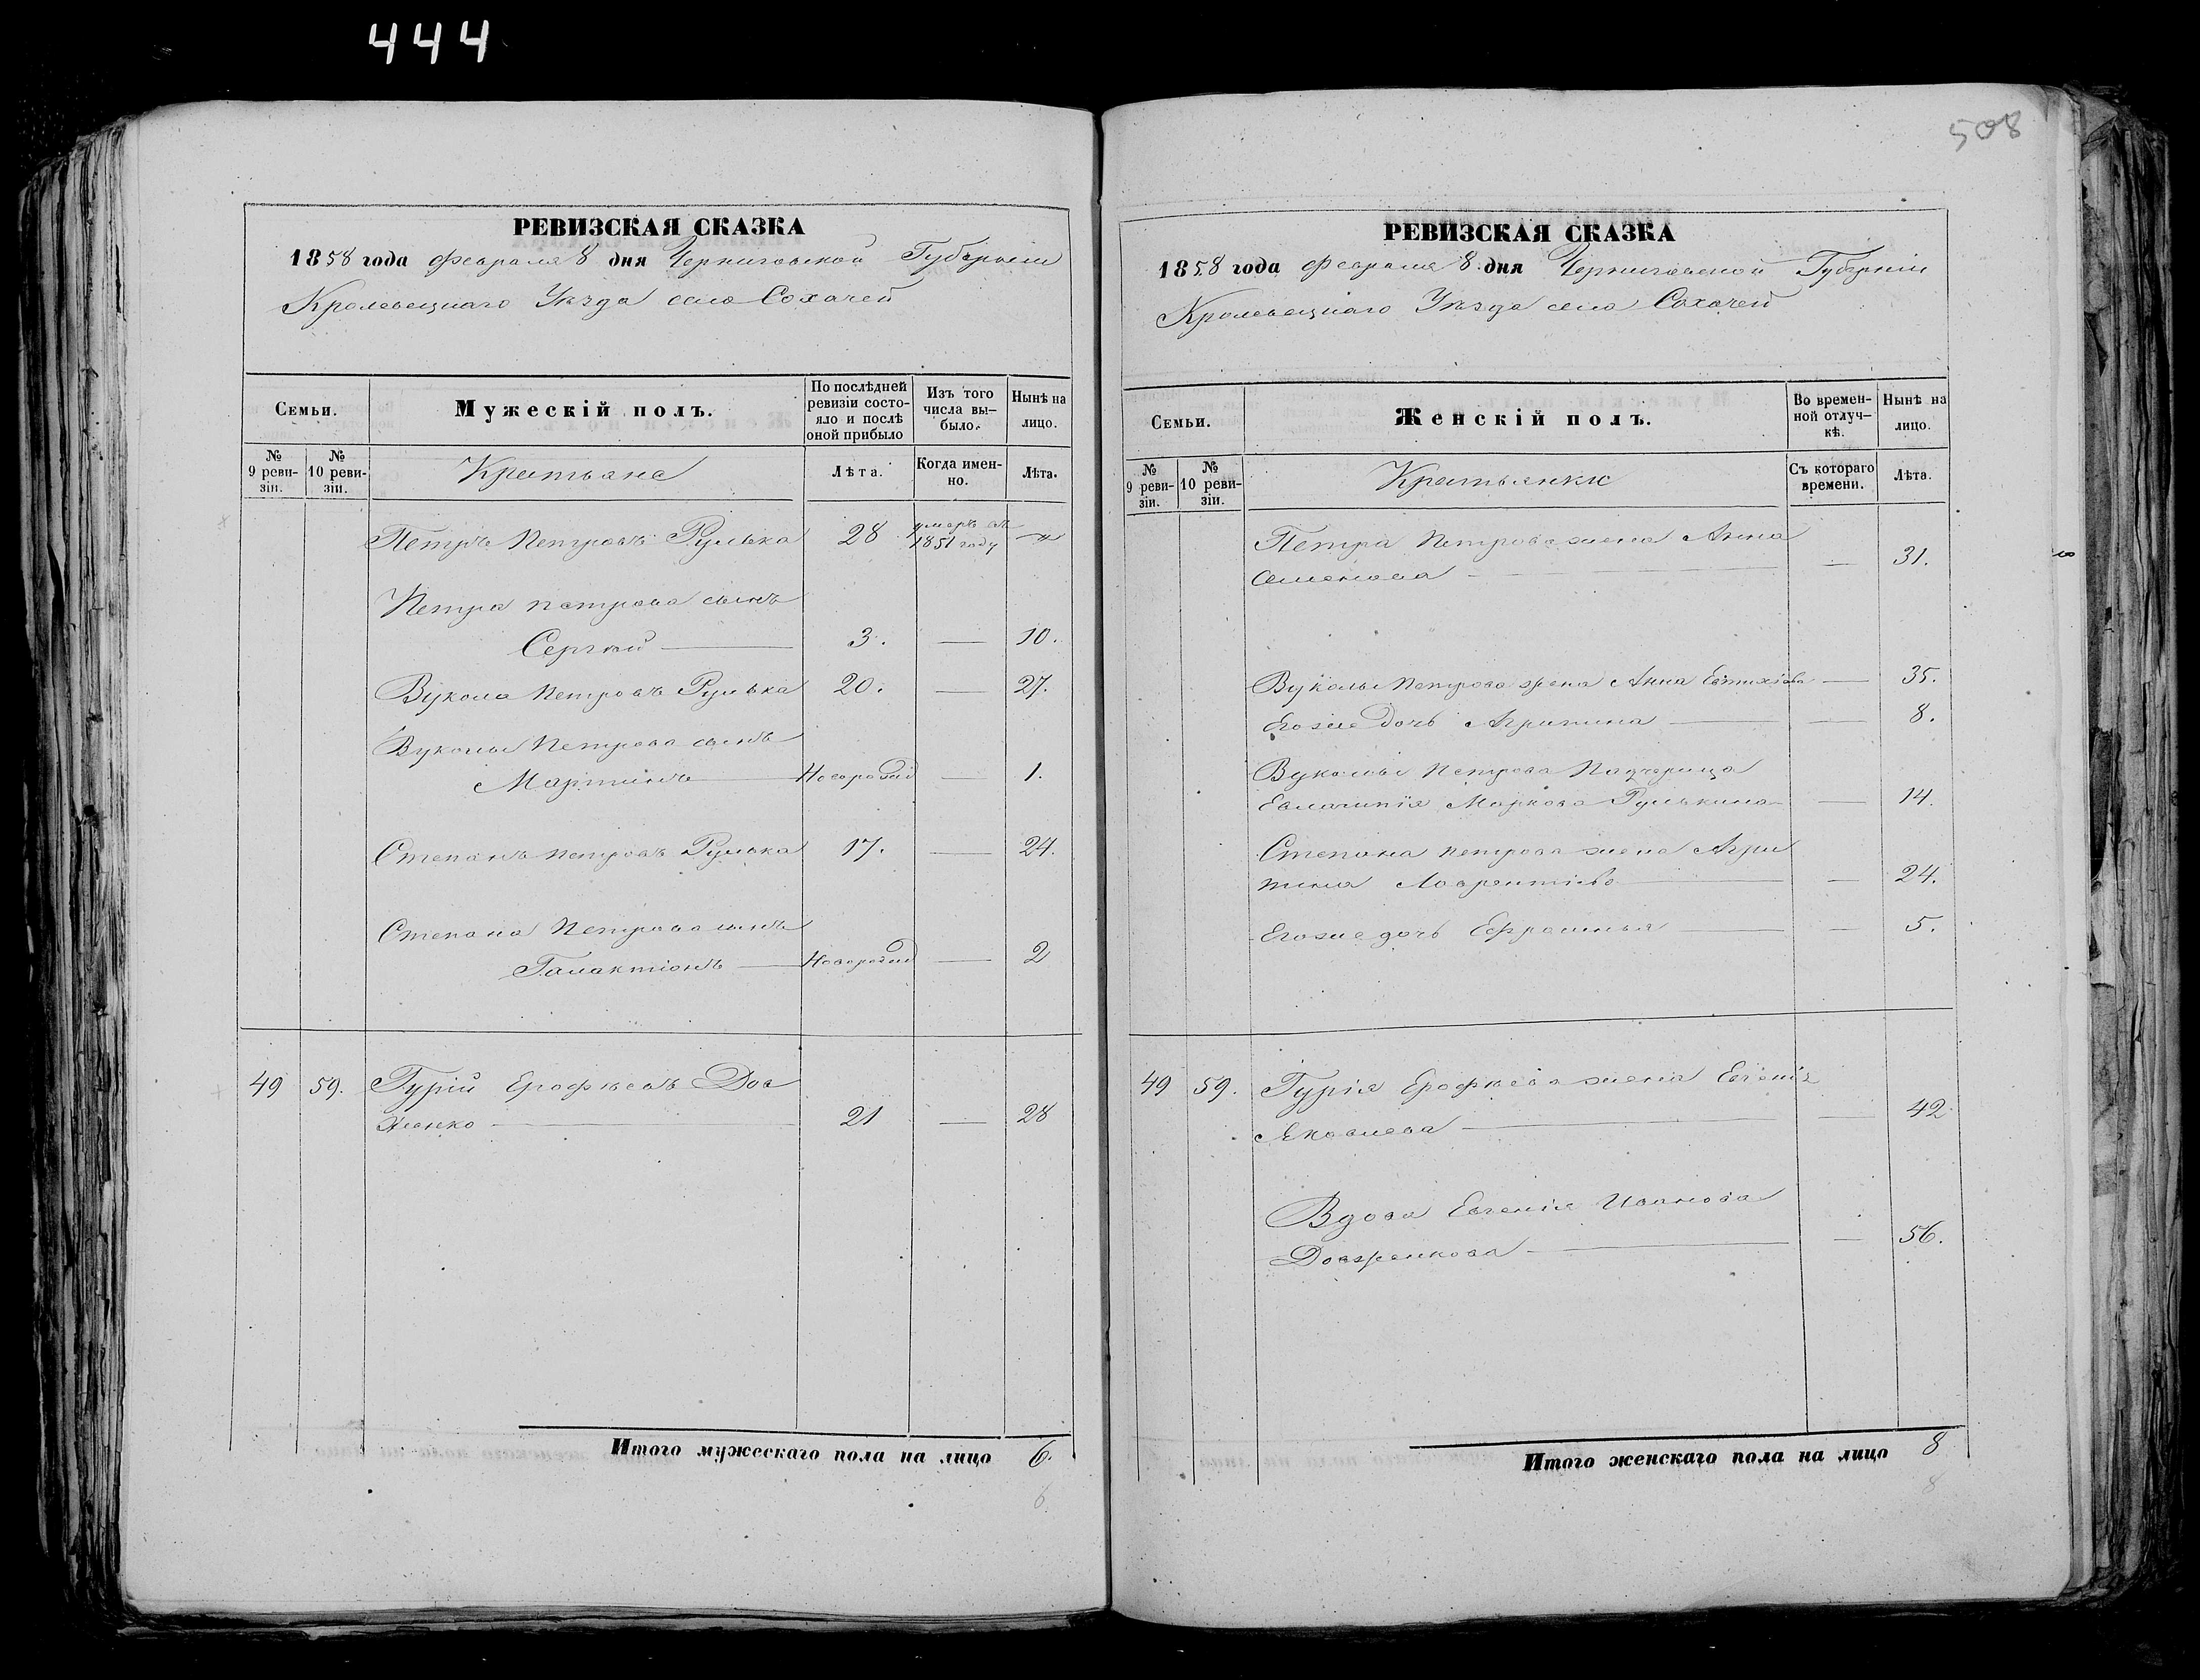 444
508
РЕВИЗСКАЯ СКАЗКА
1858 года февраля 8 дня Черниговской Губерніи
Кролевецкаго Уѣзда село Сохачей
Семьи.
Мужескій полъ.
По послѣдней ревизіи состояло и послѣ оной прибыло
Изъ того числа выбыло.
Нынѣ на лицо.
№ 9 ревизіи.
№ 10 ревизіи.
Крестьяне
Лѣта.
Когда именно.
Лѣта.
Петръ Петровъ Рулька 28 умеръ въ 1851 году "
Петра Петрова сынъ
Сергѣй — 3. — 10.
Вукола Петровъ Рулька 20. — 27.
Вуколы Петрова сынъ
Мартинъ — Новорожд — 1.
Степанъ Петровъ Рулька 17. — 24.
Степана Петрова сынъ
Галактіонъ — Новорожд — 2
49 59. Гурій Ерофѣевъ Дов
женко — 21 — 28
Итого мужескаго пола на лицо 6.
6.
РЕВИЗСКАЯ СКАЗКА
1858 года февраля 8 дня Черниговской Губерніи
Кролевецкаго Уѣзда село Сохачей
Семьи.
Женскій полъ.
Во временной отлучкѣ.
Нынѣ на лицо.
№ 9 ревизіи.
№ 10 ревизіи.
Крестьянки
Съ котораго времени.
Лѣта.
Петра Петрова жена Анна
Семенова — — 31.
Вуколы Петрова жена Анна Евтихіева — 35.
Егоже дочь Агрипина — — 8.
Вуколы Петрова Падчерица
Евлампія Маркова Рулькина — 14.
Степана Петрова жена Агри
пина Лаврентіева — — 24.
Егоже дочь Ефросинья — — 5.
49 59. Гурія Ерофѣева жена Евгенія
Яковлева — — 42
Вдова Евгенія Иванова
Довженкова — — 56.
Итого женскаго пола на лицо 8
8